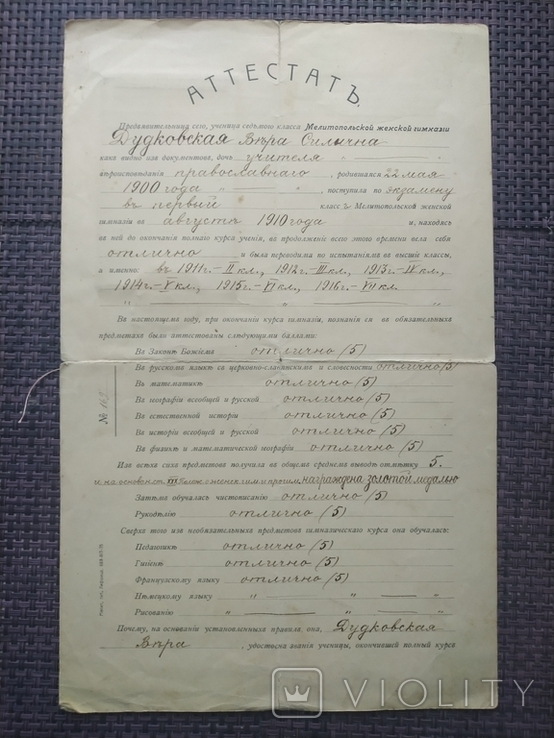 АТТЕСТАТЪ.
Предъявительница сего, ученица седьмого класса Мелитопольской женской гимназіи
Дудковская Вѣра Силична
какъ видно изъ документовъ, дочь учителя
вѣроисповѣданія православнаго, родившаяся 22 мая
1900 года, поступила по экзамену
въ первый классъ Мелитопольской женской
гимназіи въ августѣ 1910 года и, находясь
въ ней до окончанія полнаго курса ученія, въ продолженіе всего этого времени вела себя
отлично и была переводима по испытаніямъ въ высшіе классы,
а именно: въ 1911 г.-II кл., 1912 г.-III кл., 1913 г.-IV кл.,
1914 г.-V кл., 1915 г.-VI кл., 1916 г.-VII кл.
" " "
Въ настоящемъ году, при окончаніи курса гимназіи, познанія ея въ обязательныхъ
предметахъ были аттестованы слѣдующими баллами:
Въ Законѣ Божіемъ отлично (5)
Въ русскомъ языкѣ съ церковно-славянскимъ и словесности отлично (5)
Въ математикѣ отлично (5)
Въ географіи всеобщей и русской отлично (5)
Въ естественной исторіи отлично (5)
Въ исторіи всеобщей и русской отлично (5)
Въ физикѣ и математической географіи отлично (5)
Изъ всѣхъ сихъ предметовъ получила въ общемъ среднемъ выводѣ отмѣтку 5.
и, на основаніи награждена золотой медалью
Затѣмъ обучалась чистописанію отлично (5)
Рукодѣлію отлично (5)
Сверхъ того изъ необязательныхъ предметовъ гимназическаго курса она обучалась:
Педагогикѣ отлично (5)
Гигіенѣ отлично (5)
Французскому языку отлично (5)
Нѣмецкому языку " " "
Рисованію " " "
Почему, на основаніи установленныхъ правилъ она, Дудковская
Вѣра, удостоена званія ученицы, окончившей полный курсъ
№ 162
VIOLITY